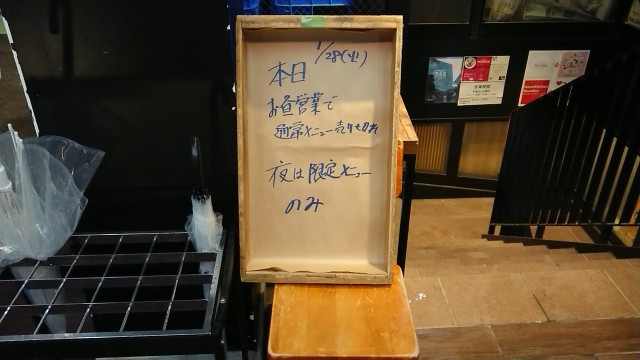 1/28(火)
本日
お昼営業で
通常メニュー売り切れ
夜は限定メニュー
のみ